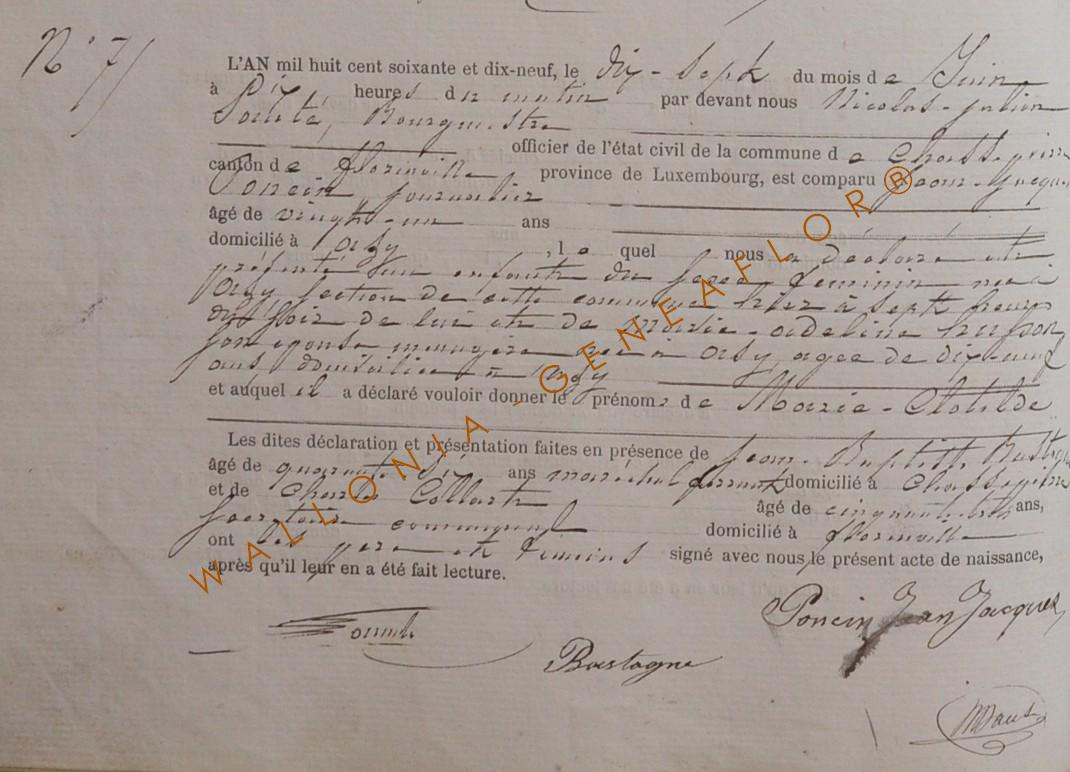 N° 7
L'AN mil huit cent soixante et dix-neuf, le dix-sept du mois de Juin
à Dix heures du matin par devant nous Nicolas-Julien
Bourgmestre
officier de l'état civil de la commune de Chassepierre
canton de florenville province de Luxembourg, est comparu Jean-Jacques
Poncin, journalier
âgé de vingt-un ans
domicilié à azy, le quel nous a déclaré et
présenté un enfant du sexe féminin née à
azy section de cette commune hier à sept heures
du soir de lui et de Marie-adeline
son épouse ménagère née à azy, agée de dix-neuf
ans domiciliée à azy
et auquel il a déclaré vouloir donner le prénoms de Marie-Clotilde
Les dites déclaration et présentation faites en présence de Jean-Baptiste
âgé de quarante six ans maréchal ferrant domicilié à Chassepierre
et de Charles Collart âgé de cinquante trois ans,
secrétaire communal domicilié à florenville
ont les père et témoins signé avec nous le présent acte de naissance,
après qu'il leur en a été fait lecture.
Poncin Jean Jacques
Bastogne
WALLONIA - GENEAFLOR®